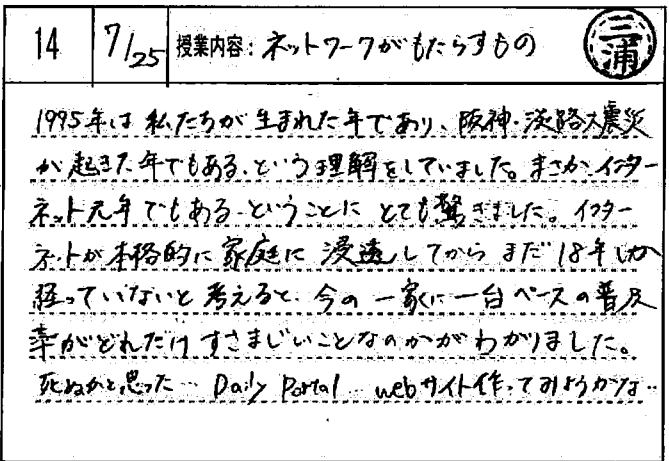 14 7/25 授業内容: ネットワークがもたらすもの 三浦
1995年は私たちが生まれた年であり、阪神・淡路大震災
が起きた年でもある、という理解をしていました。まさかインター
ネット元年でもある、ということにとても驚きました。インター
ネットが本格的に家庭に浸透してからまだ18年しか
経っていないと考えると、今の一家に一台ペースの普及
率がどれだけすさまじいことなのかがわかりました。
死ぬかと思った… Daily Portal… webサイト作ってみようかな…